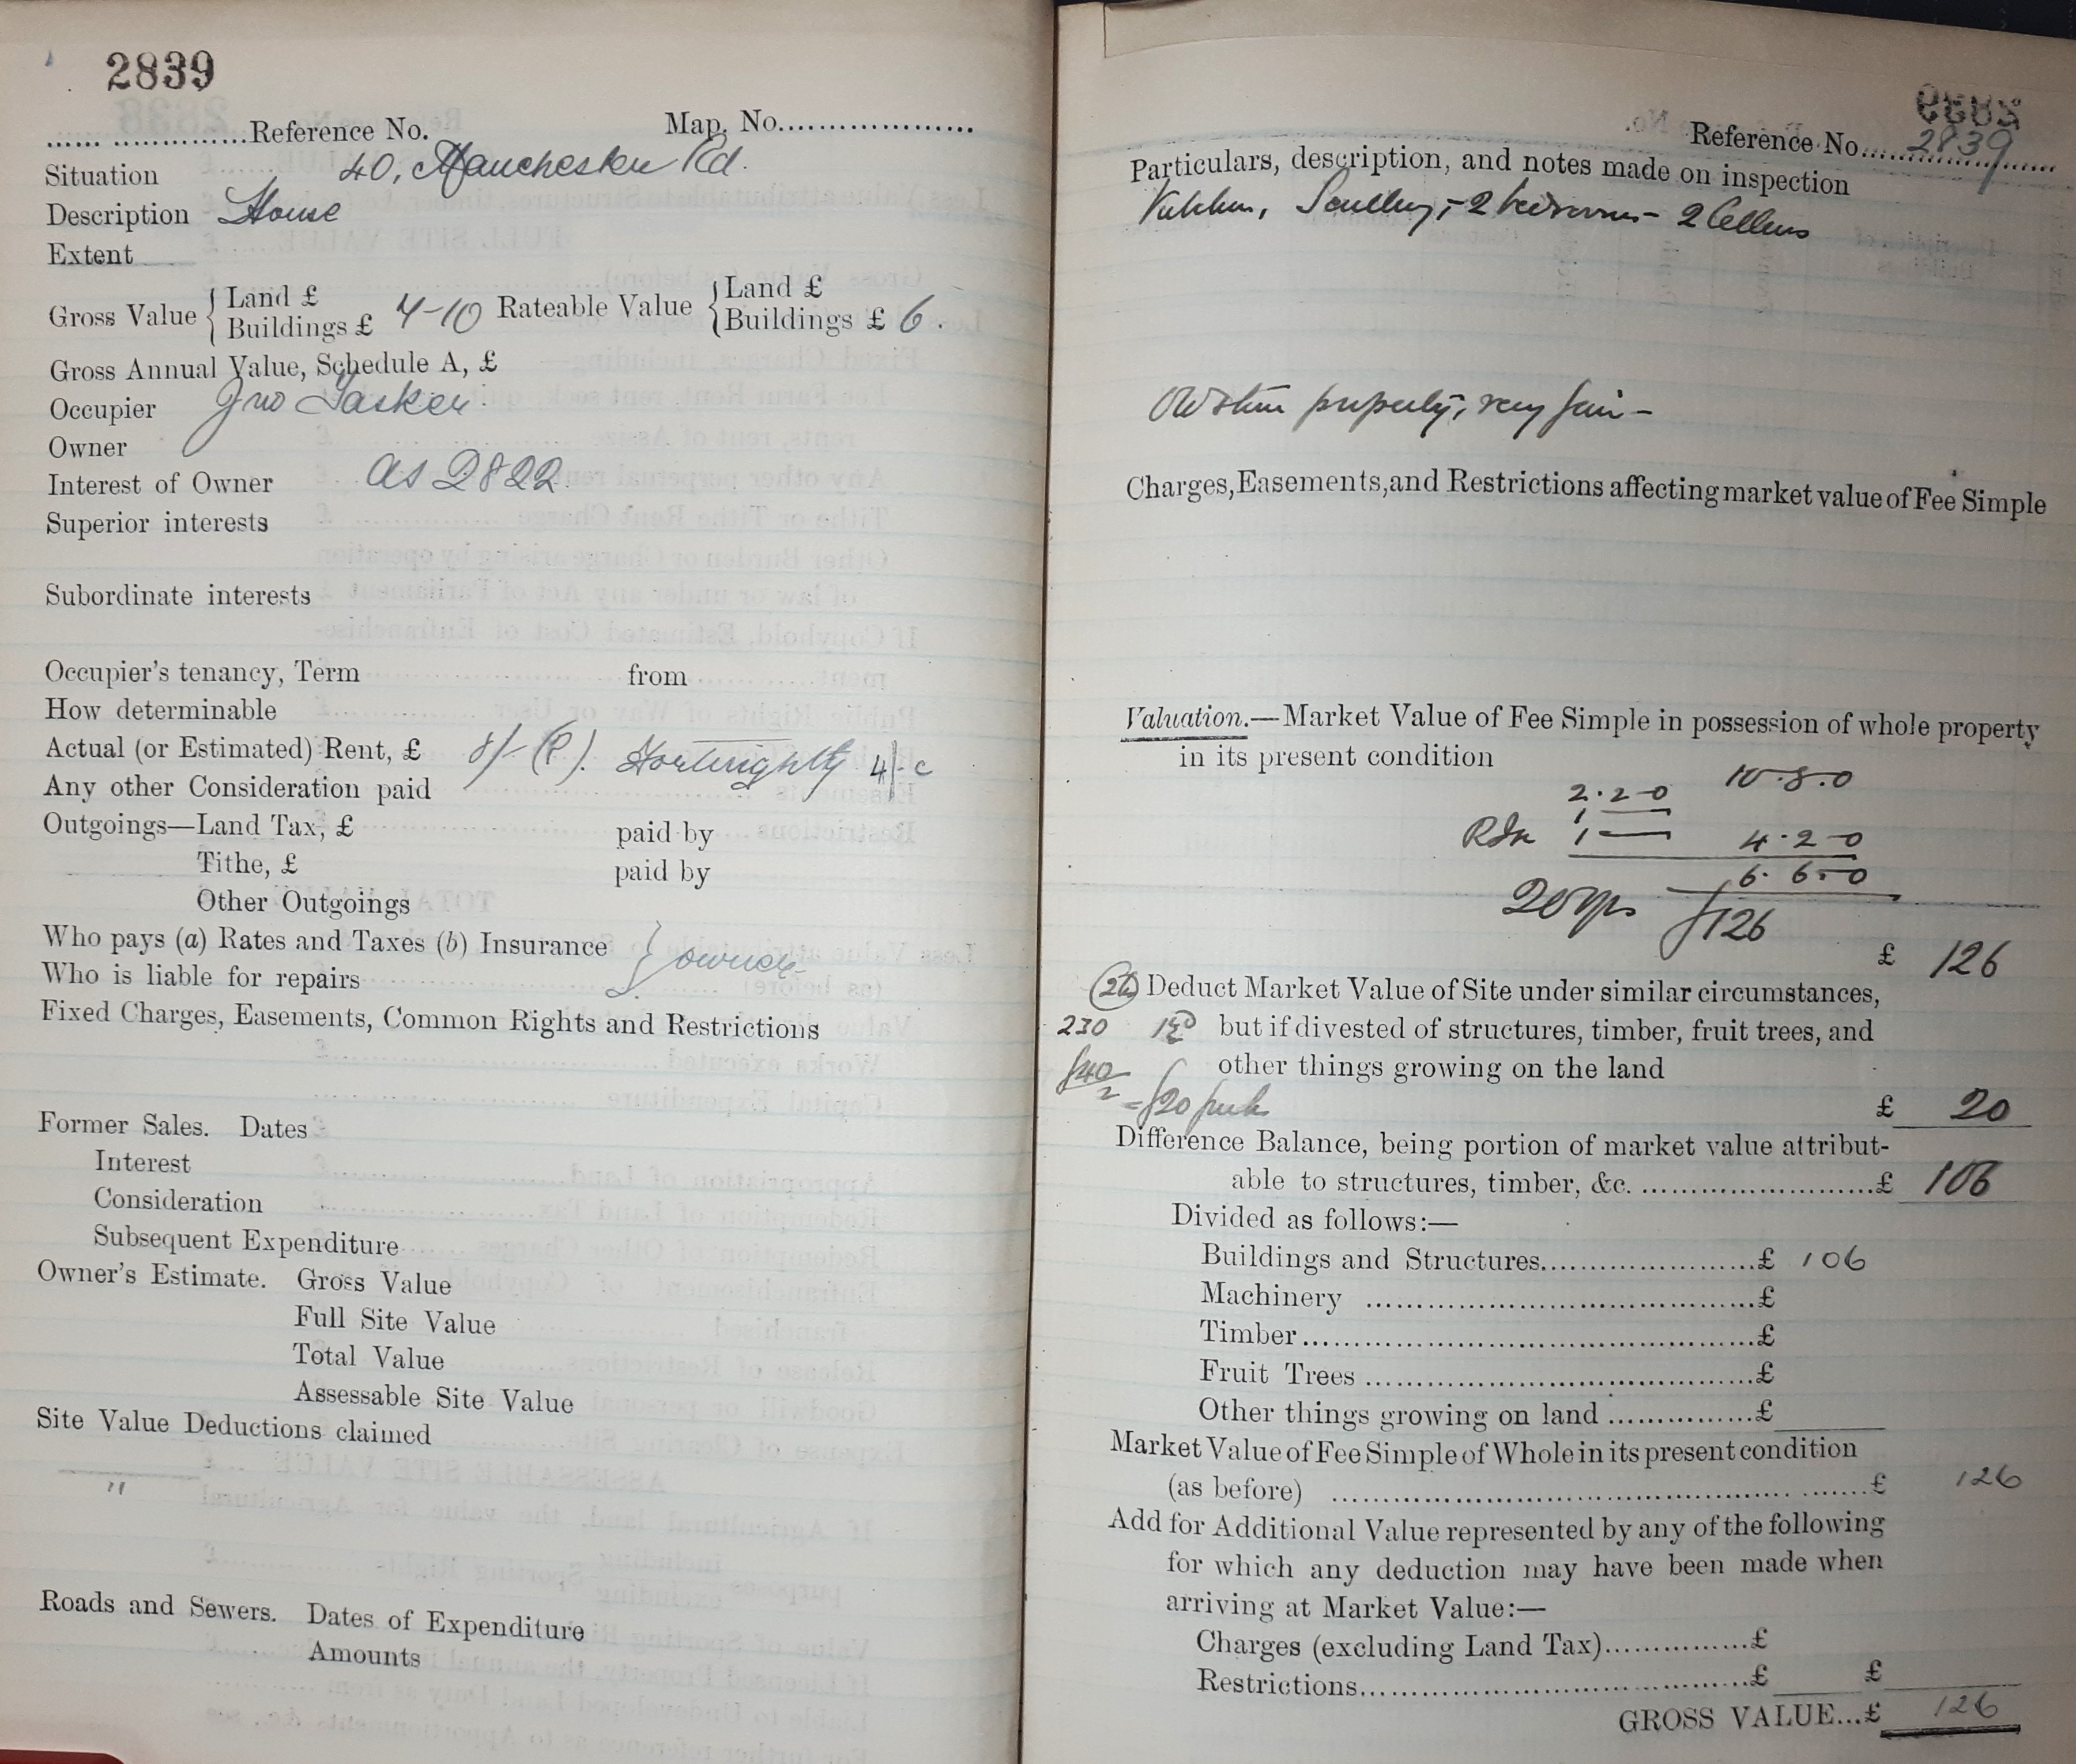 2839
Reference No. Map. No.
Situation 40, Manchester Rd.
Description House
Extent
Gross Value { Land £
Buildings £ 4-10 Rateable Value { Land £
Buildings £ 6.
Gross Annual Value, Schedule A, £
Occupier Jno Tasker.
Owner
Interest of Owner as 2822.
Superior interests
Subordinate interests
Occupier's tenancy, Term from
How determinable
Actual (or Estimated) Rent, £ 8/- (P). Fortnightly 4/- c
Any other Consideration paid
Outgoings—Land Tax, £ paid by
Tithe, £ paid by
Other Outgoings
Who pays (a) Rates and Taxes (b) Insurance } owner
Who is liable for repairs
Fixed Charges, Easements, Common Rights and Restrictions
Former Sales. Dates
Interest
Consideration
Subsequent Expenditure
Owner's Estimate. Gross Value
Full Site Value
Total Value
Assessable Site Value
Site Value Deductions claimed
"
Roads and Sewers. Dates of Expenditure
Amounts
Reference No. 2839
Particulars, description, and notes made on inspection
Kitchen, Scullery, - 2 bedrooms - 2 Cellars
Old stone property, very fair -
Charges, Easements, and Restrictions affecting market value of Fee Simple
Valuation.—Market Value of Fee Simple in possession of whole property
in its present condition
10.8.0
2.2-0
1
1 4.2-0
6.6.0
20 yrs £126
£ 126
Deduct Market Value of Site under similar circumstances,
230 but if divested of structures, timber, fruit trees, and
£40/2 other things growing on the land
= £20
£ 20
Difference Balance, being portion of market value attribut-
able to structures, timber, &c. £ 106
Divided as follows:—
Buildings and Structures £ 106
Machinery £
Timber £
Fruit Trees £
Other things growing on land £
Market Value of Fee Simple of Whole in its present condition
(as before) £ 126
Add for Additional Value represented by any of the following
for which any deduction may have been made when
arriving at Market Value:—
Charges (excluding Land Tax) £
Restrictions £ £
GROSS VALUE...£ 126